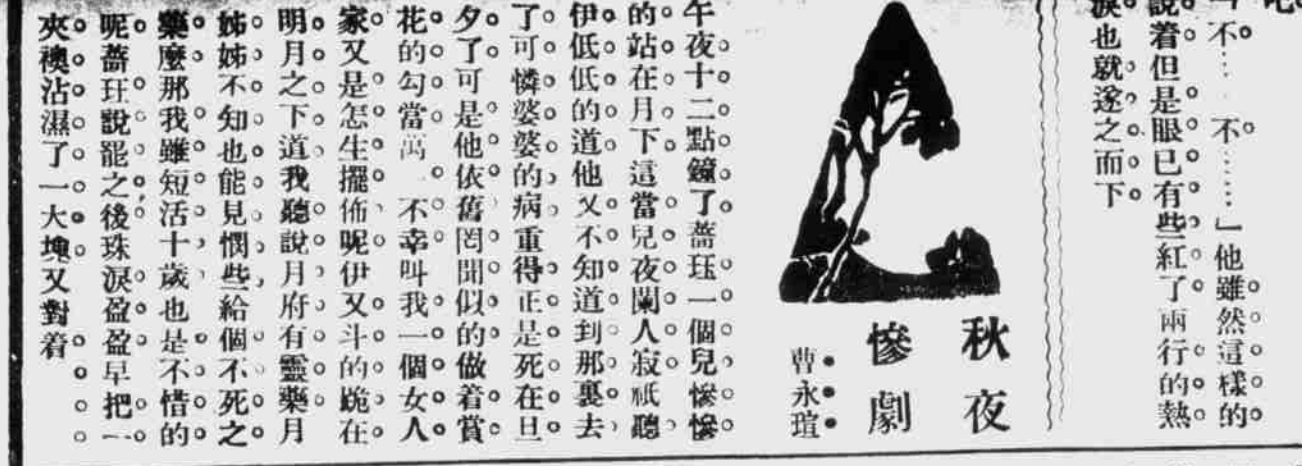 吧
「不……不……」他雖然這樣的
說着但是眼已有些紅了兩行的熱
淚也就遂之而下
秋夜
慘劇
曹永瑄
午夜十二點鐘了薔珏一個兒慘慘
的站在月下這當兒夜闌人寂祇聽
伊低低的道他又不知道到那裏去
了可憐婆婆的病重得正是死在旦
夕了可是他依舊罔聞似的做着賞
花的勾當萬一不幸叫我一個女人
家又是怎生擺佈呢伊又斗的跪在
明月之下道我聽說月府有靈藥月
姊姊不知也能見憫些給個不死之
藥麼那我雖短活十歲也是不惜的
呢薔玨說罷之後珠淚盈盈早把一
夾襖沾濕了一大塊又對着